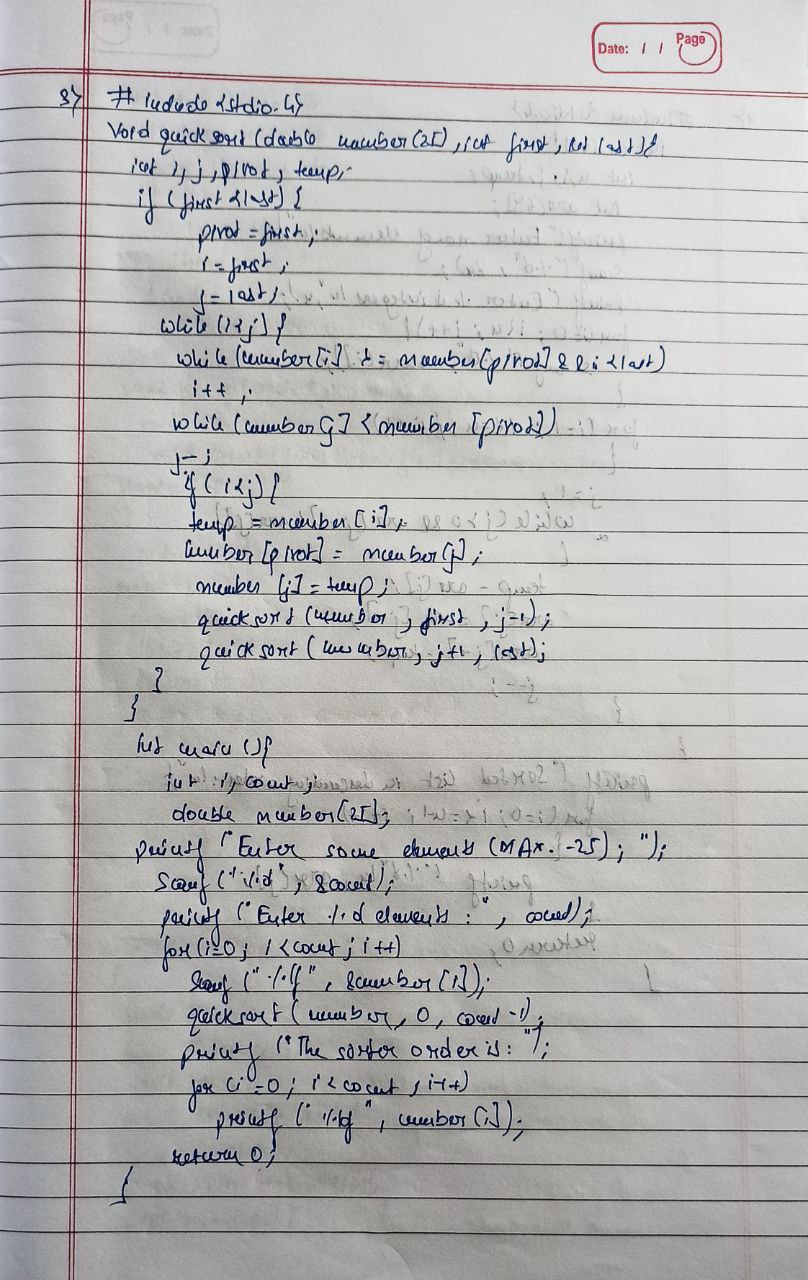 Date: / / Page
3) # include <stdio.h>
Void quick sort (double number [25], int first, int last) {
int i, j, pivot, temp;
if (first < last) {
pivot = first;
i = first;
j = last;
while (i < j) {
while (number [i] >= number [pivot] && i < last)
i++;
while (number [j] < number [pivot])
j--;
if (i < j) {
temp = number [i];
number [pivot] = number [j];
number [j] = temp;
quick sort (number, first, j-1);
quick sort (number, j+1, last);
}
}
int main () {
int i, count;
double number [25];
printf ("Enter some elements (MAX. -25); ");
Scanf ("%d", &count);
printf ("Enter %d elements : ", count);
for (i=0; i < count; i++)
Scanf ("%lf", &number [i]);
quick sort (number, 0, count -1);
printf ("The sorter order is: ");
for (i=0; i < count; i++)
printf (" %lf ", number [i]);
return 0;
}